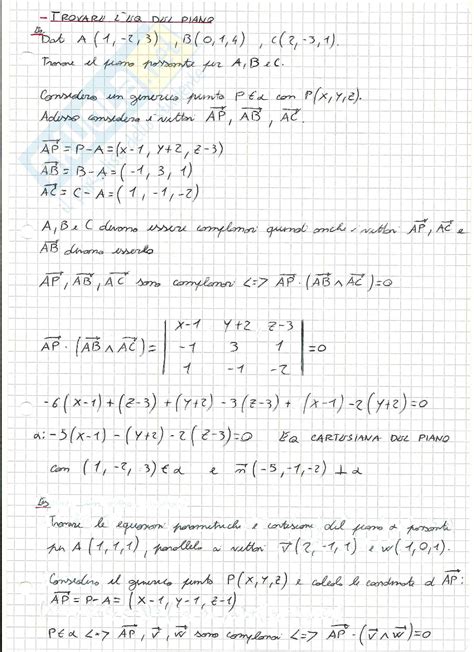 - TROVARE L'EQ DEL PIANO
Es
Dati A (1,-2,3) , B(0,1,4) , C(2,-3,1).
Trovare il piano passante per A, B e C.
Considero un generico punto P∈α con P(x,y,z).
Adesso considero i vettori AP, AB, AC.
AP = P-A = (x-1, y+2, z-3)
AB = B-A = (-1, 3, 1)
AC = C-A = (1, -1, -2)
A, B e C devono essere complanari quindi anche i vettori AP, AC e
AB devono esserlo
AP, AB, AC sono complanari <=> AP · (AB ∧ AC) = 0
AP · (AB ∧ AC) = | x-1 y+2 z-3 |
| -1 3 1 | = 0
| 1 -1 -2 |
-6(x-1)+(z-3)+(y+2)-3(z-3)+(x-1)-2(y+2)=0
α: -5(x-1)-(y+2)-2(z-3)=0 EQ CARTESIANA DEL PIANO
con (1,-2,3)∈α e n(-5,-1,-2) ⊥ α
Es
Trovare le equazioni parametriche e cartesiane del piano α passante
per A(1,1,1), parallelo ai vettori v(2,-1,1) e w(1,0,1).
Considero il generico punto P(x,y,z) e calcolo le coordinate di AP:
AP = P-A = (x-1, y-1, z-1)
P∈α <=> AP, v, w sono complanari <=> AP · (v ∧ w) = 0